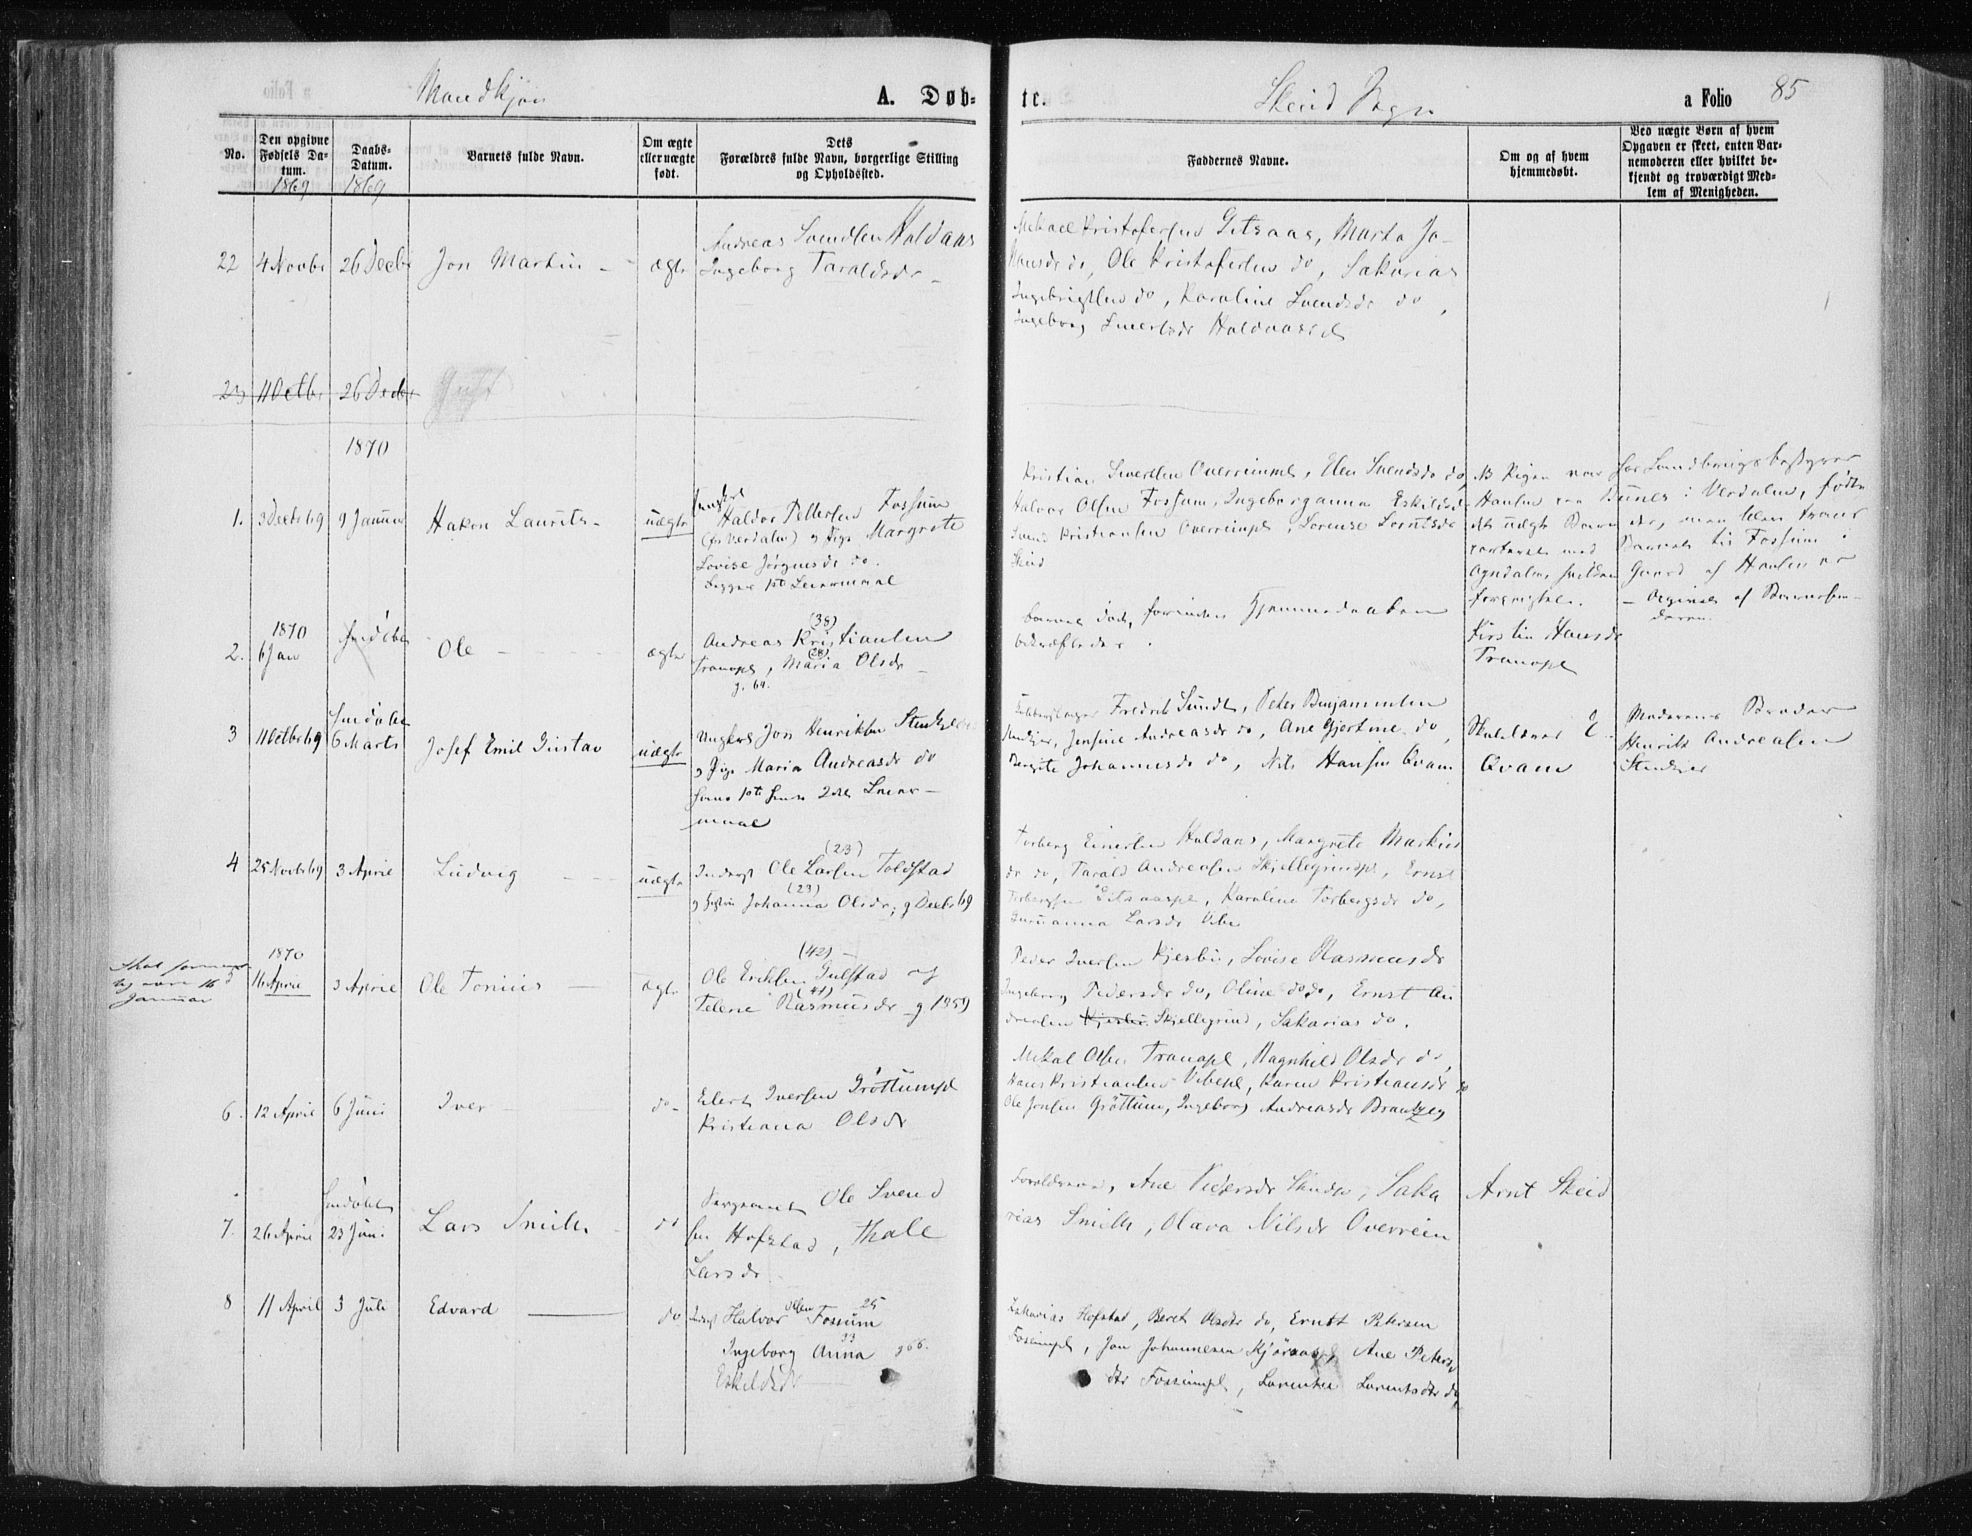 Mandkjøn
A. Døbte.
Skeid Sogn
a Folio 85
No.
Den opgivne Fødsels Datum.
1869
Daabs-Datum.
1869
Barnets fulde Navn.
Om ægte eller uægte født.
Dets Forældres fulde Navn, borgerlige Stilling og Opholdssted.
Faddernes Navne.
Om og af hvem hjemmedøbt.
Ved uægte Børn af hvem Opgaven er skeet, enten Barnemoderen eller hvilket bekjendt og troværdigt Medlem af Menigheden.
22 4 Novbr 26 Decbr Jon Martin - ægte
Andreas Svendsen Haldaas
Ingeborg Taraldsdr -
Mikael Kristofersen Gitsaas, Marta Jo-
hansdr do, Ole Kristofersen do, Sakarias
Ingebrigtsen do, Karoline Svendsdr do,
Ingeborg Haldaas
23 11 Octbr 26 Decbr
1870
1. 3 Decbr 69 9 Januar Hakon Laurits - uægte
Haldor Pettersen Fossum
(Verdalen) g Pige Margrete
Lovise Jørgensdr do.
Begges 1st Leiermaal
Kristian Sivertsen Overreinspl, Elen Svendsdr do,
Halvor Olsen Fossum, Ingeborganna Eskildsdr
Svend Kristiansen Overreinspl, Lorense Lorntsdr
Skeid
NB Pigen var hos Landbrugsbestyrer
Hansen paa i Verdalen, fødte
det uægte Barn der, men blev trans
porteret med Barnet til Fossum i
Ogndalen
1870
2. 6 Jan Ole - ægte
(38)
Andreas Kristiansen
Tranapl, Maria Olsdr -
(28)
g. 64.
Barnet død, forinden Hjemmedaaben
bekræftedes.
Kirstin Hansdr
Tranapl
3 11 Octbr 69 6 Marts Josef Emil Gustav uægte
Ungkarl Jon Henriksen Stenkjær
g Pige Maria Andreasdr do
hans 1ste hendes 2det Leier-
maal
Fredrik Sundt, Peter Benjaminsen
Stenkjær, Jensine Andreasdr do, Ane Gjertine do,
Bergite Johannesdr do, Nils Hansen Qvam
Skolelærer E.
Qvam
Moderens Broder
Henrik Andreasen
Stenkjær
4 25 Novbr 69 3 April Ludvig - - uægte
(23)
Inderst Ole Larsen Toldstad
(23)
Johanna Olsdr, g Decbr 69
Torberg Einersen Haldaas, Margrete Markus
dr do, Tarald Andreasen Skjellegrindspl, Ernst
Torbergsen Gitsaaspl, Karoline Torbergsdr do,
Guruanna Larsdr Vibe
1870
5 16 April 3 April Ole Tonius - ægte
Januar
(42) -
Ole Eriksen Gulstad og
(41)
Telene Rasmusdr - g 1859
Peder Iversen Kjesbu, Lovise Rasmusdr
Ingeborg Pedersdr do, Oline do do, Ernst An
dreasen Kjesbu Skjellegrind, Sakarias do.
6. 12 April 6 Juni Iver - do -
Eilert Iversen Grøttumspl
Kristiana Olsdr
Mikal Olsen Tranapl, Ragnhild Olsdr do,
Hans Kristiansen Vibepl, Karen Kristiansdr do
Ole Jonsen Grøttum, Ingeborg Andreasdr Brandsegg
7. 26 April 23 Juni Lars Smith - do
Sergeant Ole Svend
sen Hofstad, Thale
Larsdr
Forældrene, Ane Pedersdr Sunde, Saka
rias Smith, Olava Nilsdr Overrein
Arnt Skeid
8 11 April 3 Juli Edvard - do
Inderst Halvor Olsen Fossum 25
Ingeborg Anna 33 g 66.
Eskeldsdr
Zakarias Hofstad, Beret Olsdtr do, Ernst Petersen
Fossumspl, Jon Johannesen Kjøraaspl, Ane Peters
dtr Fossumspl, Lorentse Lorentsdtr do,